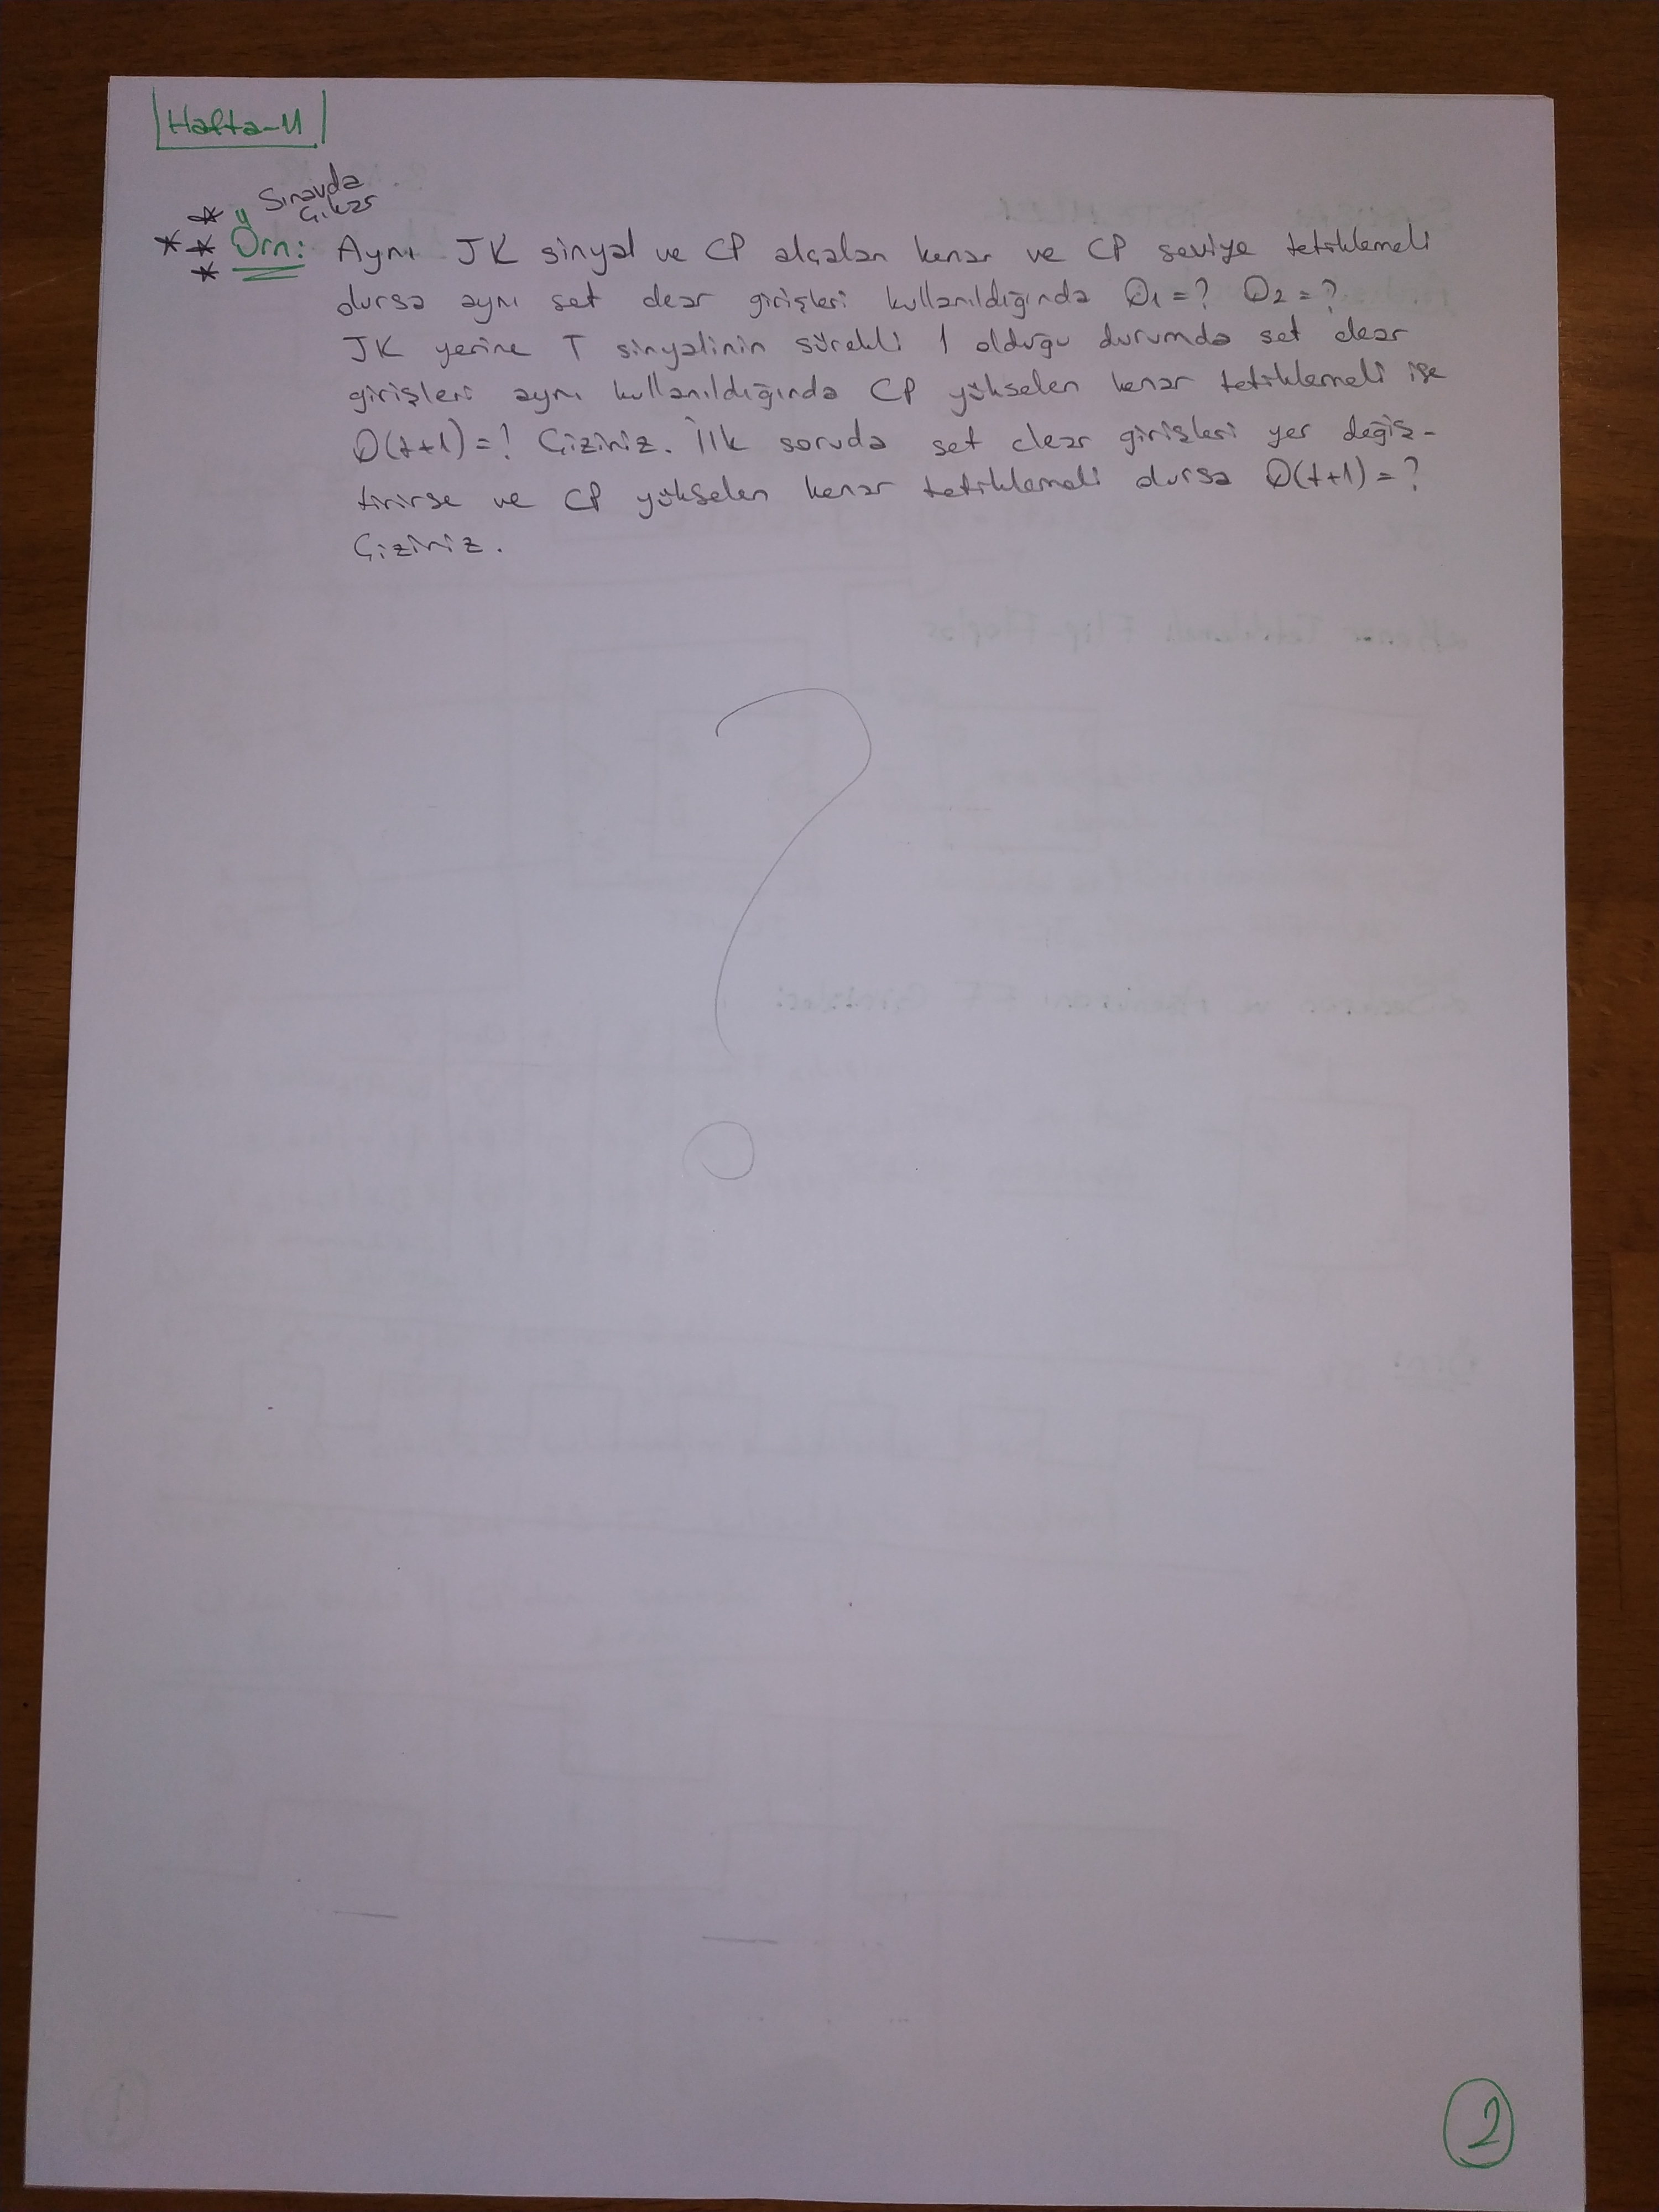 Hafta-11
Sınavda
Çıkar
Örn: Aynı JK sinyal ve CP alçalan kenar ve CP seviye tetiklemeli
olursa aynı set clear girişleri kullanıldığında Q1=? Q2=?
JK yerine T sinyalinin sürekli 1 olduğu durumda set clear
girişleri aynı kullanıldığında CP yükselen kenar tetiklemeli ise
Q(t+1)=? Çiziniz. İlk soruda set clear girişleri yer değiş-
tirirse ve CP yükselen kenar tetiklemeli olursa Q(t+1)=?
Çiziniz.
2